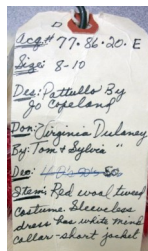 Acq# 77.86.20.E
Size: 8-10
Des: Pattullo By
Jo Copeland
Don: Virginia Dulaney
By: Tom & Sylvia "
Dec: 50s
Item: Red wool tweed
Costume. Sleeveless
dress has white mink
collar-short jacket